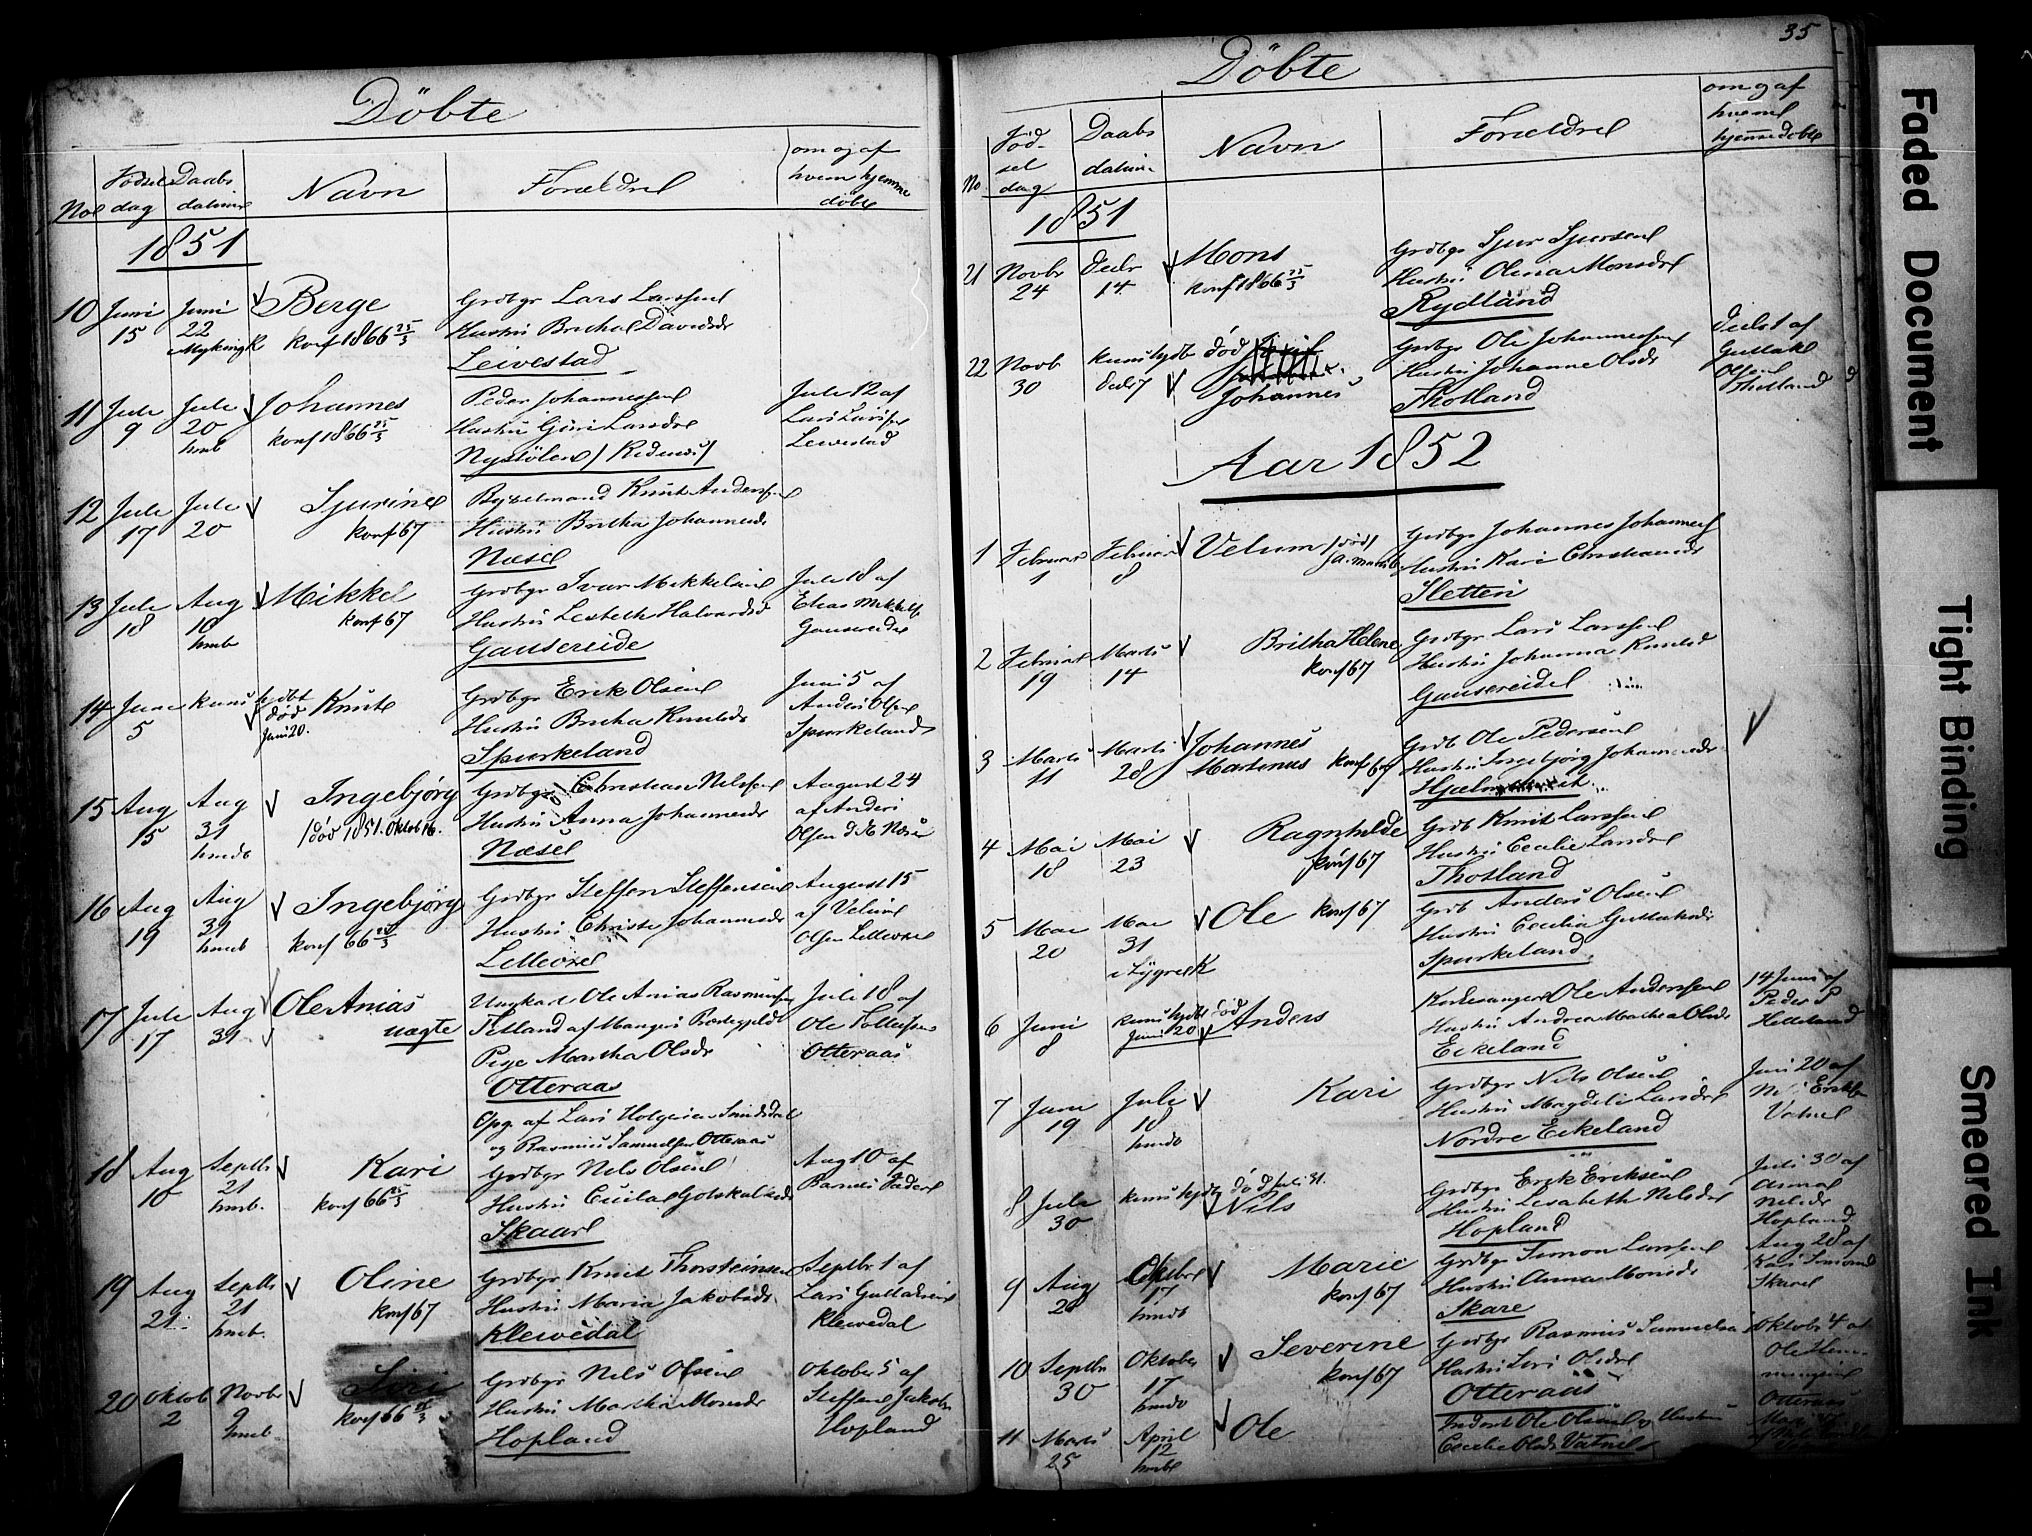 Döbte
Noe
Födsel dag
Daabs datum
Navn
Forældre
om og af hvem hjemme döbte
1851
10 Juni 15
Juni 22
Berge
konf 1866 25/3
Grdbgr Lars Larssen
Hustru Britha Davidsdr
Leivestad
11 Juli 9
Juli 20 hmb
Johannes
konf 1866 25/3
Peder Johannessen
Hustru Guri Larsdr
Nystölen
Juli 12 af
Lars Larsen
Leivestad
12 Juli 17
Juli 20
Sjurine
konf 67
Knut Anderss
Hustru Britha Johannesdr
Næsel
13 Juli 18
Aug 10 hmb
Mikkel
konf 67
Grdbgr Ivar Mikkelsen
Hustru Lisbeth Halvardsd
Gausereide
Juli 18 af
Elias Mikkels
Gausereide
14 Juni 5
kuns hjdbt
död
Juni 20.
Knut
Grdbgr Erik Olsen
Hustru Britha Knutsdr
Spurkeland
Juni 5 af
Anders Olsen
Spurkeland
15 Aug 15
Aug 31 hmdb
Ingebjörg
död 1851. Oktob 16.
Grdbgr Christian Nilssen
Hustru Anna Johannesdr
Næsel
August 24
af Anders
Olsen
16 Aug 19
Aug 31 hmb
Ingebjörg
konf 66 25/3
Grdbgr Steffen Steffensen
Hustru Christi Johannesdr
August 15
af Velum
Olsen
17 Juli 17
Aug 31
Ole Anias
uægte
Ungkarl Ole Anias Rasmussen
Fetland af Mangers Præstegjeld
Pige Martha Olsdr
Otteraas
Opg. af Lars Holgersen
og Rasmus Samuelsen Otteraas
Juli 18 af
Ole
Otteraas
18 Aug 10
Septb 21 hmb.
Kari
konf 66 25/3
Grdbgr Nils Olsen
Hustru Cicilia Gotskalksdr
Skaar
Aug 10 af
Barnets Fader
19 Aug 21
Septb 21 hmb.
Oline
konf 67
Grdbgr Knut Thorsteinsen
Hustru Maria Jakobsdr
Klevedal
Septbr 1 af
Lars Guttormsen
Klevedal
20 Oktob 2
Novbr 9 hmb
Siri
konf 66 25/3
Grdbgr Nils Olsen
Hustru Martha Monsdr
Hopland
Oktober 5 af
Steffen Jakobs
Hopland
35
Döbte
No
Födsel dag
Daabs datum
Navn
Forældre
om og af hvem hjemmedöbte
1851
21 Novbr 24
Decbr 14
Mons
konf 1866 25/3
Grdbgr Sjur Sjursen
Hustru Olina Monsdr
Rydland
22 Novb 30
kuns hjdbt
Decbr 7
död
Johannes
Grdbgr Ole Johannessen
Hustru Johanne Olsdr
Thotland
Decbr 1 af
Olsen
Thotland
Aar 1852
1 Februar 1
Februar 8
Velum
Grdbgr Johannes Johannes
Hustru Kari Christiansdr
Sletten
2 Februar 19
Marts 14
Britha Helene
konf 67
Grdbgr Lars Larssen
Hustru Johanna Knutsd
Gausereidet
3 Marts 11
Marts 28
Johannes Martinus
konf 67
Grdb Ole Pedersen
Hustru Ingebjörg Johannesdr
4 Mai 18
Mai 23
Ragnhilde
konf 67
Grdb Knut Larssen
Hustru Cecilie Larsdr
Thotland
5 Mai 20
Mai 31
i Lygre K
Ole
konf 67
Grdb Anders Olsen
Hustru Cecilia
Spurkeland
6 Juni 8
kuns hjdbt död
Juni 20
Anders
Kirkesanger Ole Anderssen
Hustru Andrea Olsdr
Eikeland
14 Juni af
Peder P
Helleland
7 Juni 19
Juli 18 hmdb
Kari
Grdbgr Nils Olsen
Hustru Magdeli Larsdr
Nordre Eikeland
Juni 20 af
Nils
Vatne
8 Juli 30
kuns hjdbt död Juli 31.
Nils
Grdbgr Erik Eriksen
Hustru Lisabeth Nilsdr
Hopland
Juli 30 af
Nilsdr
Hopland
9 Aug 28
Oktober 17 hmdb
Marie
konf 67
Grdbgr Simon Larssen
Hustru Anna Monsdr
Skare
Aug 28 af
Skare
10 Septbr 30
Oktober 17 hmdb
Severine
konf 67
Grdbgr Rasmus Samuelsen
Hustru Siri Olsdr
Otteraas
Oktobr 4 af
Ole Hem-
mingsen
Otteraas
11 Marts 25
April 12 hmbt
Ole
Inderst Ole Olsen og Hustru
Cecilie Olsdr Vatne
Faded Document
Tight Binding
Smeared Ink